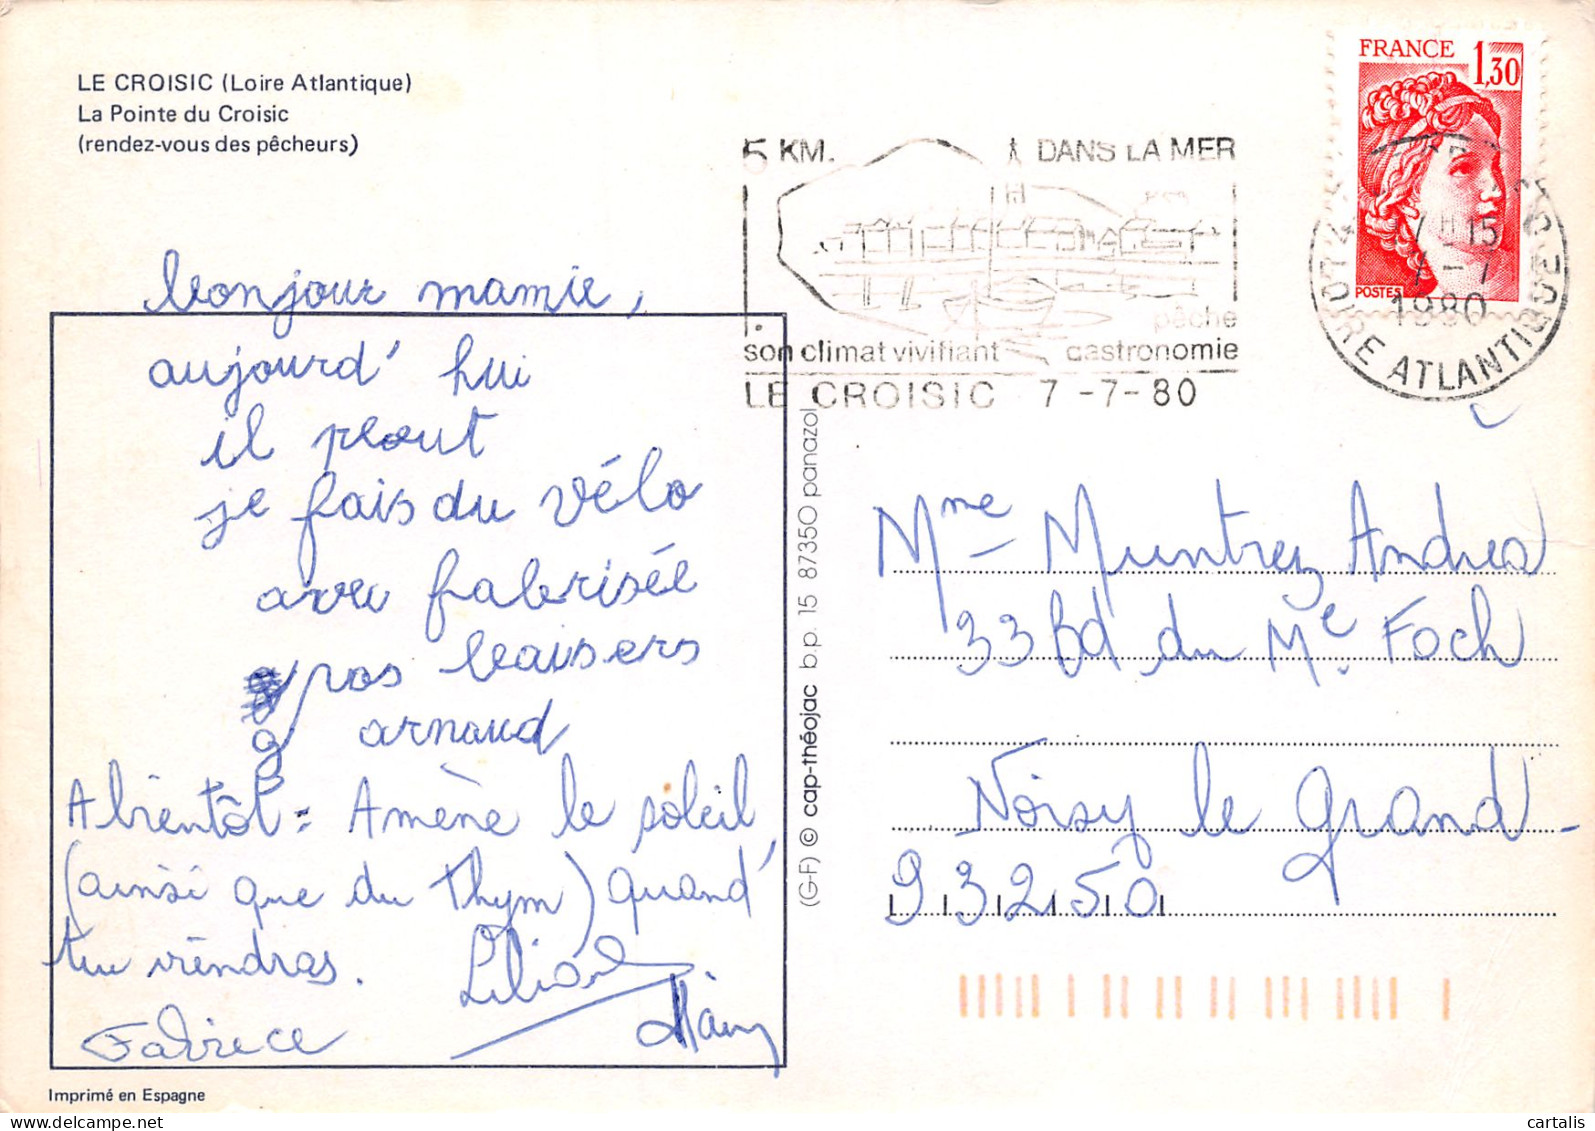 LE CROISIC (Loire Atlantique)
La Pointe du Croisic
(rendez-vous des pêcheurs)
bonjour mamie,
aujourd'hui
il pleut
je fais du vélo
avec fabrisée
gros baisers
g arnaud
A bientôt : Amène le soleil,
(ainsi que du thym) quand
tu viendras.
Liliane
Fabrice
Imprimé en Espagne
(G-F) © cap-théojac b.p. 15 87350 panazol
5 KM. DANS LA MER
pêche
son climat vivifiant gastronomie
LE CROISIC 7-7-80
FRANCE 1,30
POSTES
7 H 15
7-7
1980
LOIRE ATLANTIQUE
Mme Muntrez Andréa
33 Bd du Me. Foch
Noisy le grand -
93250
cartalis